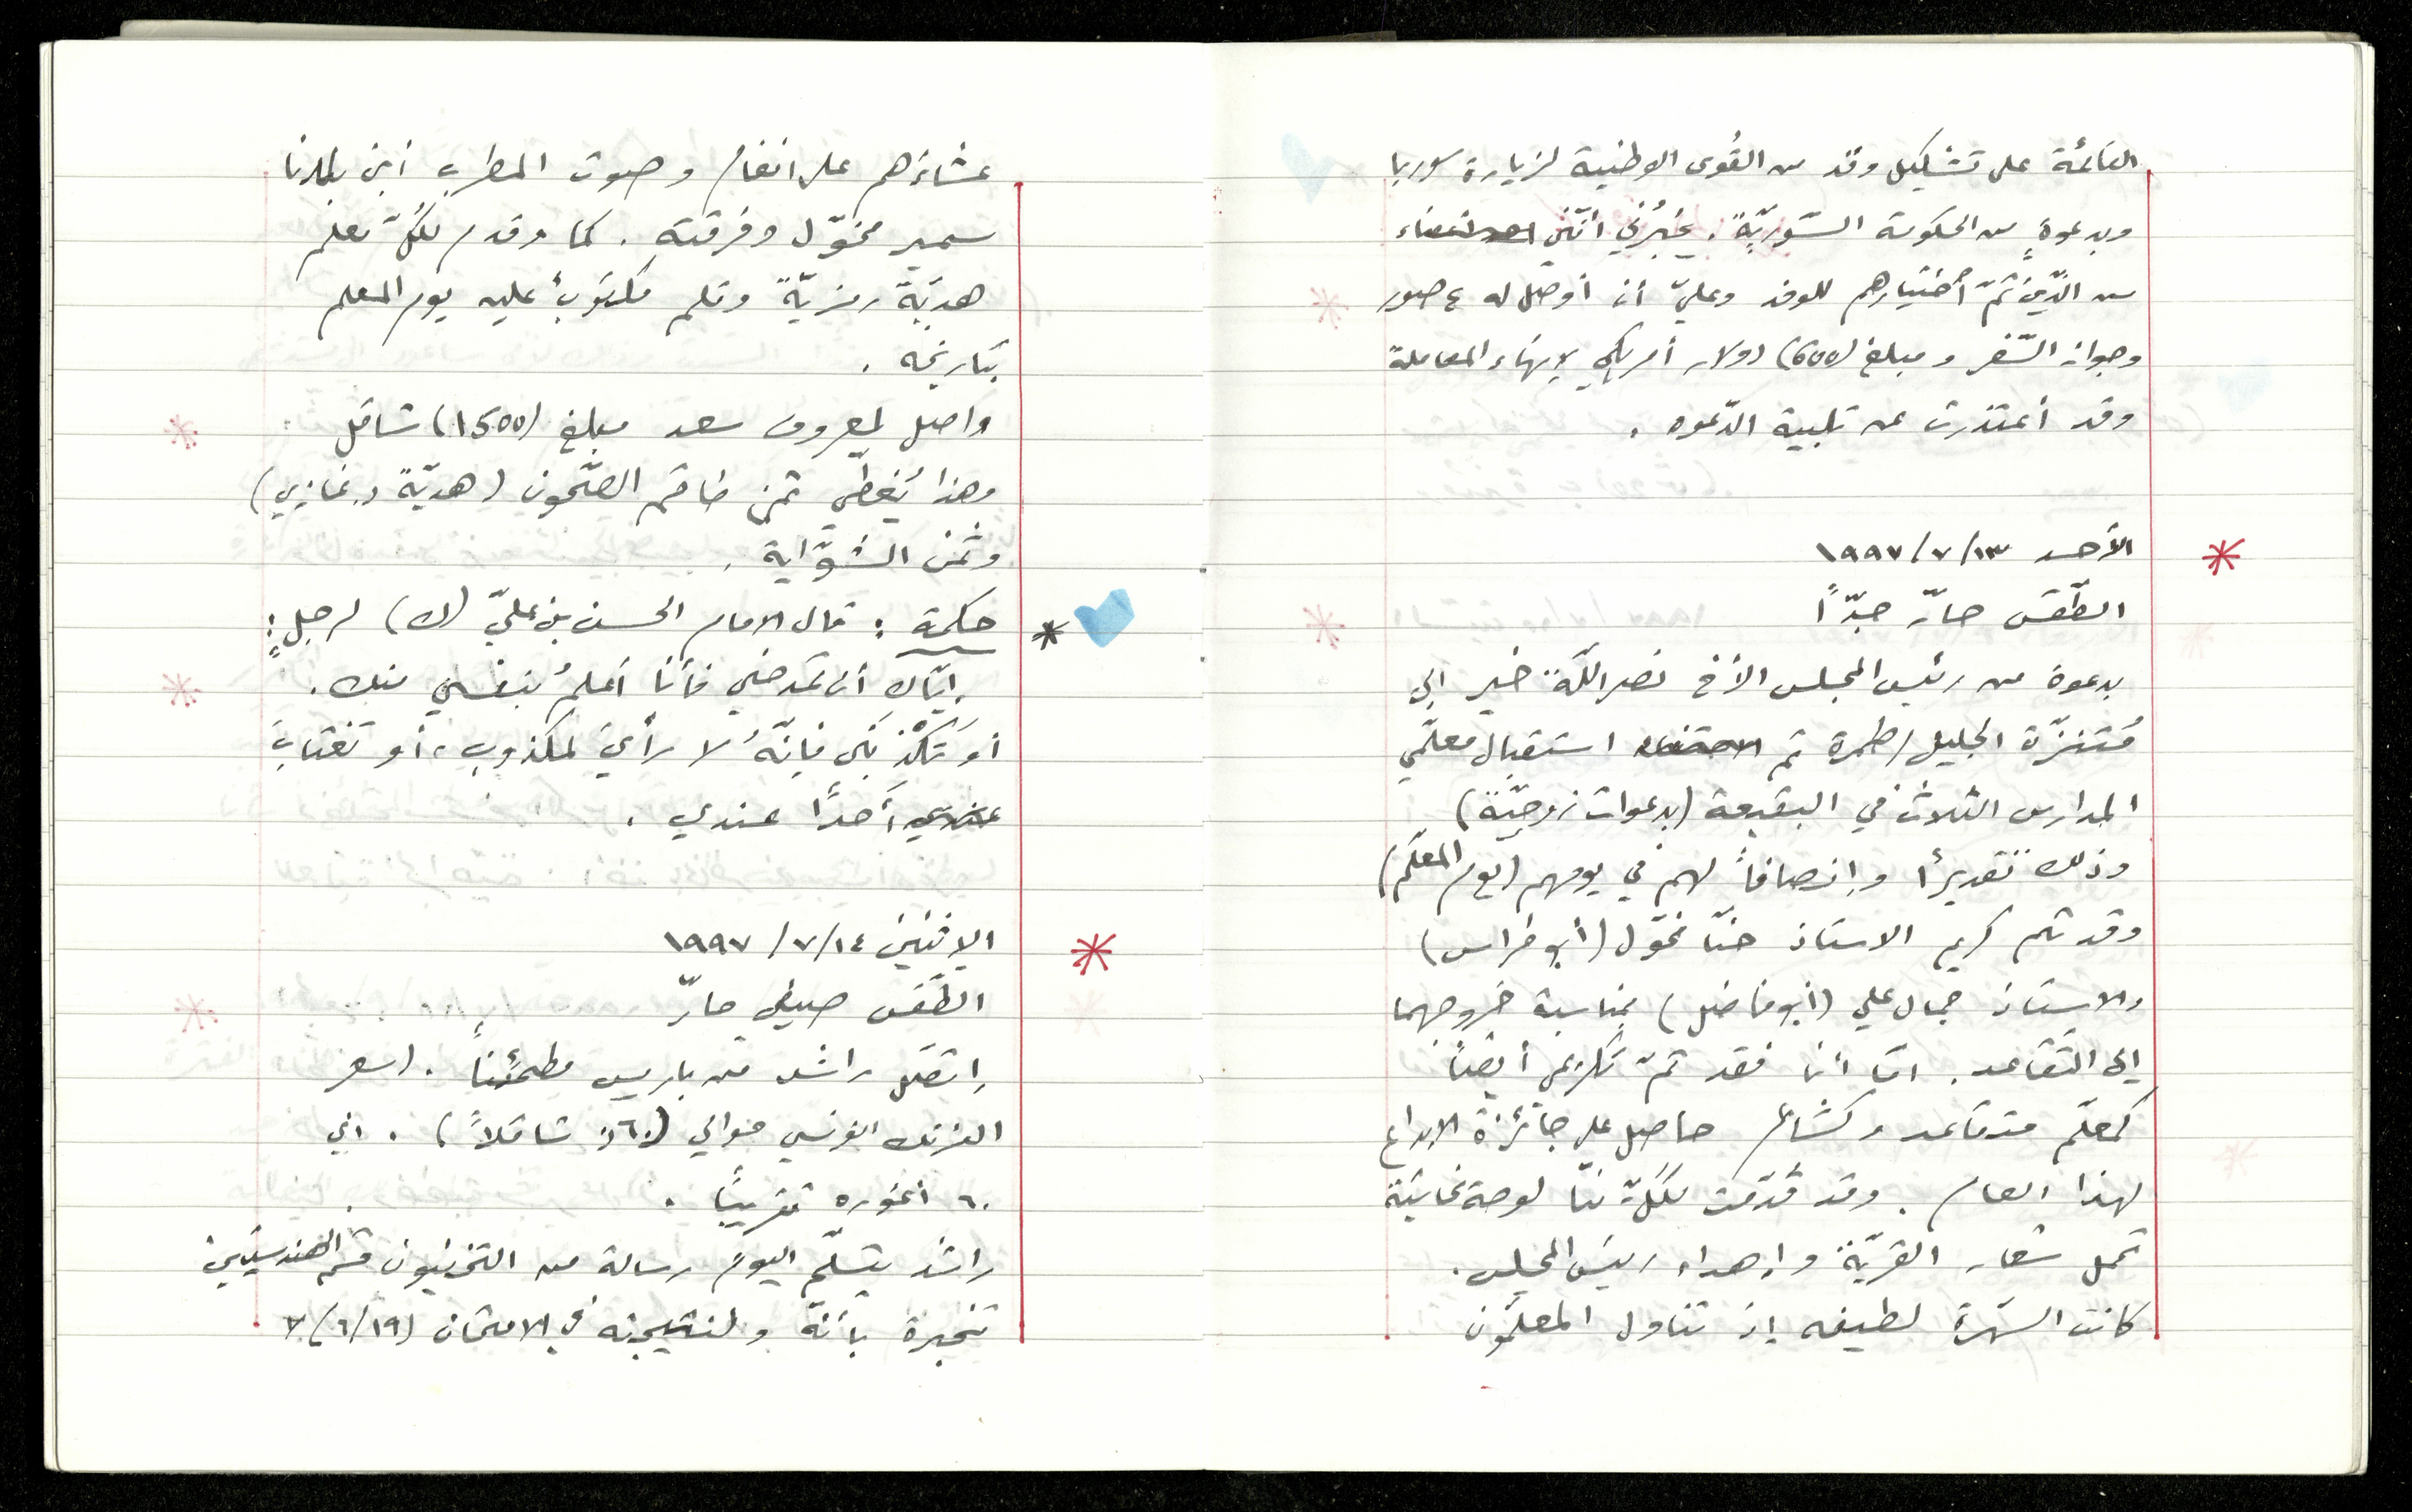 القائمة على تشكيل وفد من القُوى الوطنية لزيارة سوريا
وبدعوةٍ من الحكومة السّوريّة. يخبرُني أنّني
من الذّين تمّ أختيارهم للوفد وعليّ أن أوصل له ٤ صور
وجواز السّفر ومبلغ (600) دولار أمريكي لإنهاء المعاملة
وقد أعتذرت عن تلبية الدّعوه.
* الأحد ١٣/٧/١٩٩٧
الطّقس حارّ جدّاً
بدعوة من رئيس المجلس الأخ نصرالله خير إلى
مُتنزّة الجليل/طمرة تم استقبال معلّمي
المدارس الثلاث في البقيعة (بدعوات زوجيّة)
وذلك تقديراً وإنصافاً لهم في يومهم (يوم المعلّم)
وقد تم كريم الاستاذ حنّا مخّول (أبو فراس)
والاستاذ جمال علي (أبو فاضل) بمناسبة خروجهما
إلى التّقاعد. امّا أنا فقد تمّ تكريمي أيضاً
كمعلّم متقاعد وكشاعر حاصل على جائزة الابداع
لهذا العام. وقد قُدّمت لكلّ منّا لوحة نحاسيّة
تحمل شعار القريّة وإهداء رئيس المجلس.
كانت السّهرة لطيفه إذ تناول المعلّمون
عشاءَهم على انغام وصوت المطرب أبن بلدنا
سمير مخوّل وفرقته. كما وقدم لكُلّ معلم
هديّة رمزيّة وقلم مكتوبٌ عليه يوم المعلم
بتاريخه.
واصل لمعروف سعد مبلغ (1500) شاقل
وهذا يُغطّي ثمن طاقم الصّحون (هديّة د. غازي)
وثمن الشّوّاية.
* حكمة: قال الامام الحسن بن عليّ (ك) لرجلٍ:
إيّاك أن تمدحني فأنا أعلمُ بنفسي منك.
أو تَكْذِبَني فإنّهُ لا رأيَ لمكذوب، أو تغتابَ
أحداً عندي.
* الإثنين ١٤/٧/١٩٩٧
الطّقس صيفي حارّ
إتصّل راشد من باريس مطمئناً. (سعر
الفرنك الفرنسي حوالي (٦٠ر٠ شاقلاً). اي
٦٠ أغوره تقريباً.
راشد يتسلّم اليوم رسالة من التخنيون قسم الهندسة
تخبرة بأنّه ولنتيجته في الامتحان (١٩/٦/